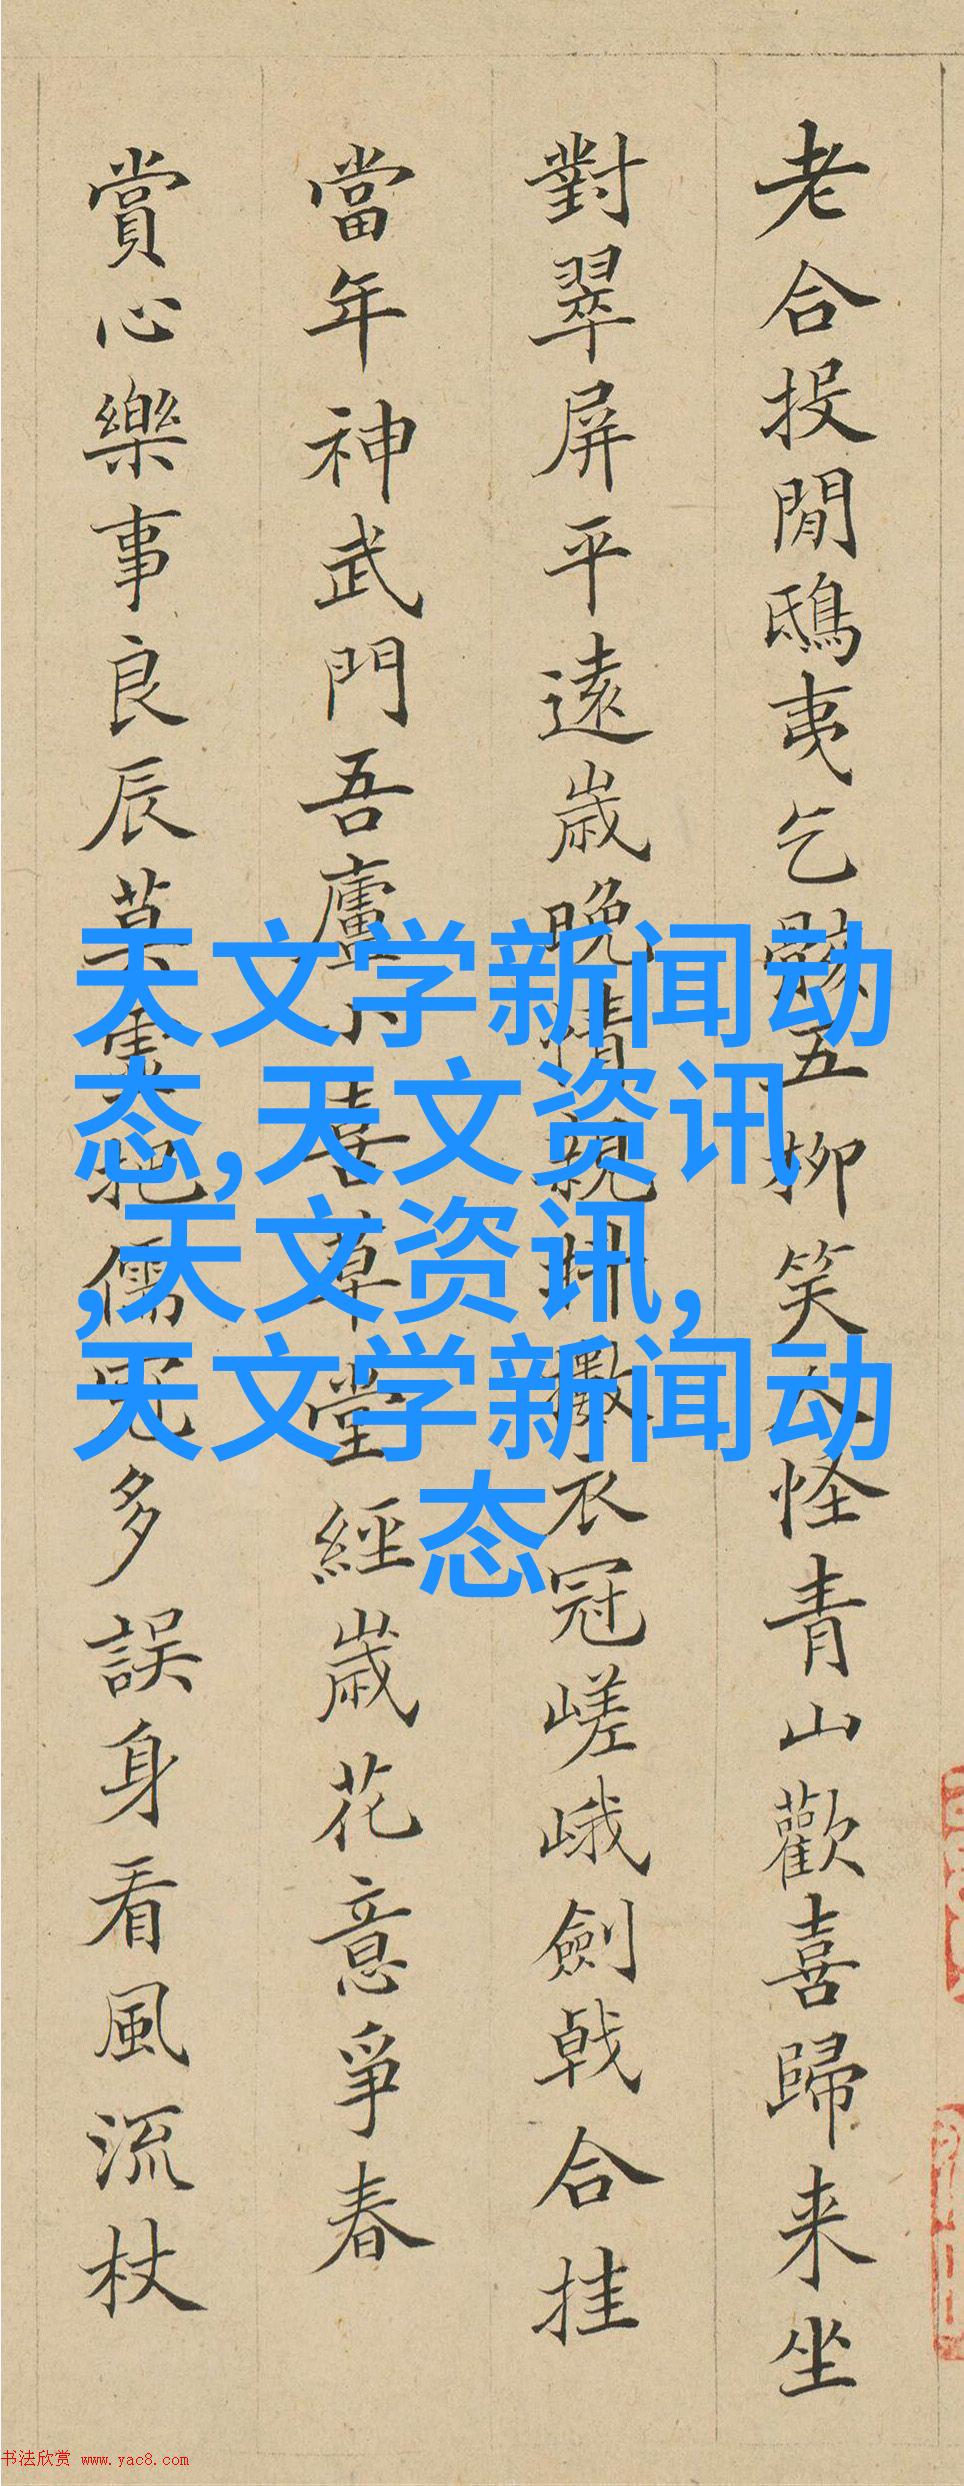 老合投閒鴟夷乞骸五柳笑人怪青山歡喜歸来坐
對翠屏平遠歳晚情親卝欝衣冠嵯峨劍戟合挂
當年神武門吾廬小喜草堂經歳花意爭春
賞心樂事良辰莫重把儒冠多誤身看風流杖
天文学新闻动
态,天文资讯
,天文资讯,
天文学新闻动
态
书法欣赏 www.yac8.com